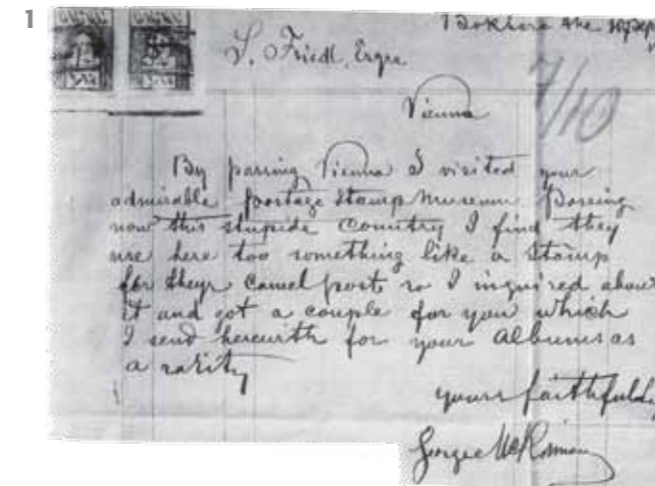 1
Bokhara the 10 Sept
S. Friedl, Esqre
7/10
Vienna
By passing Vienna I visited your
admirable postage stamp museum Passing
now this stupide country I find they
use here too something like a stamp
for theyr camel posts so I inquired about
it and got a couple for you which
I send herewith for your albums as
a rarity
yours faithfully
George